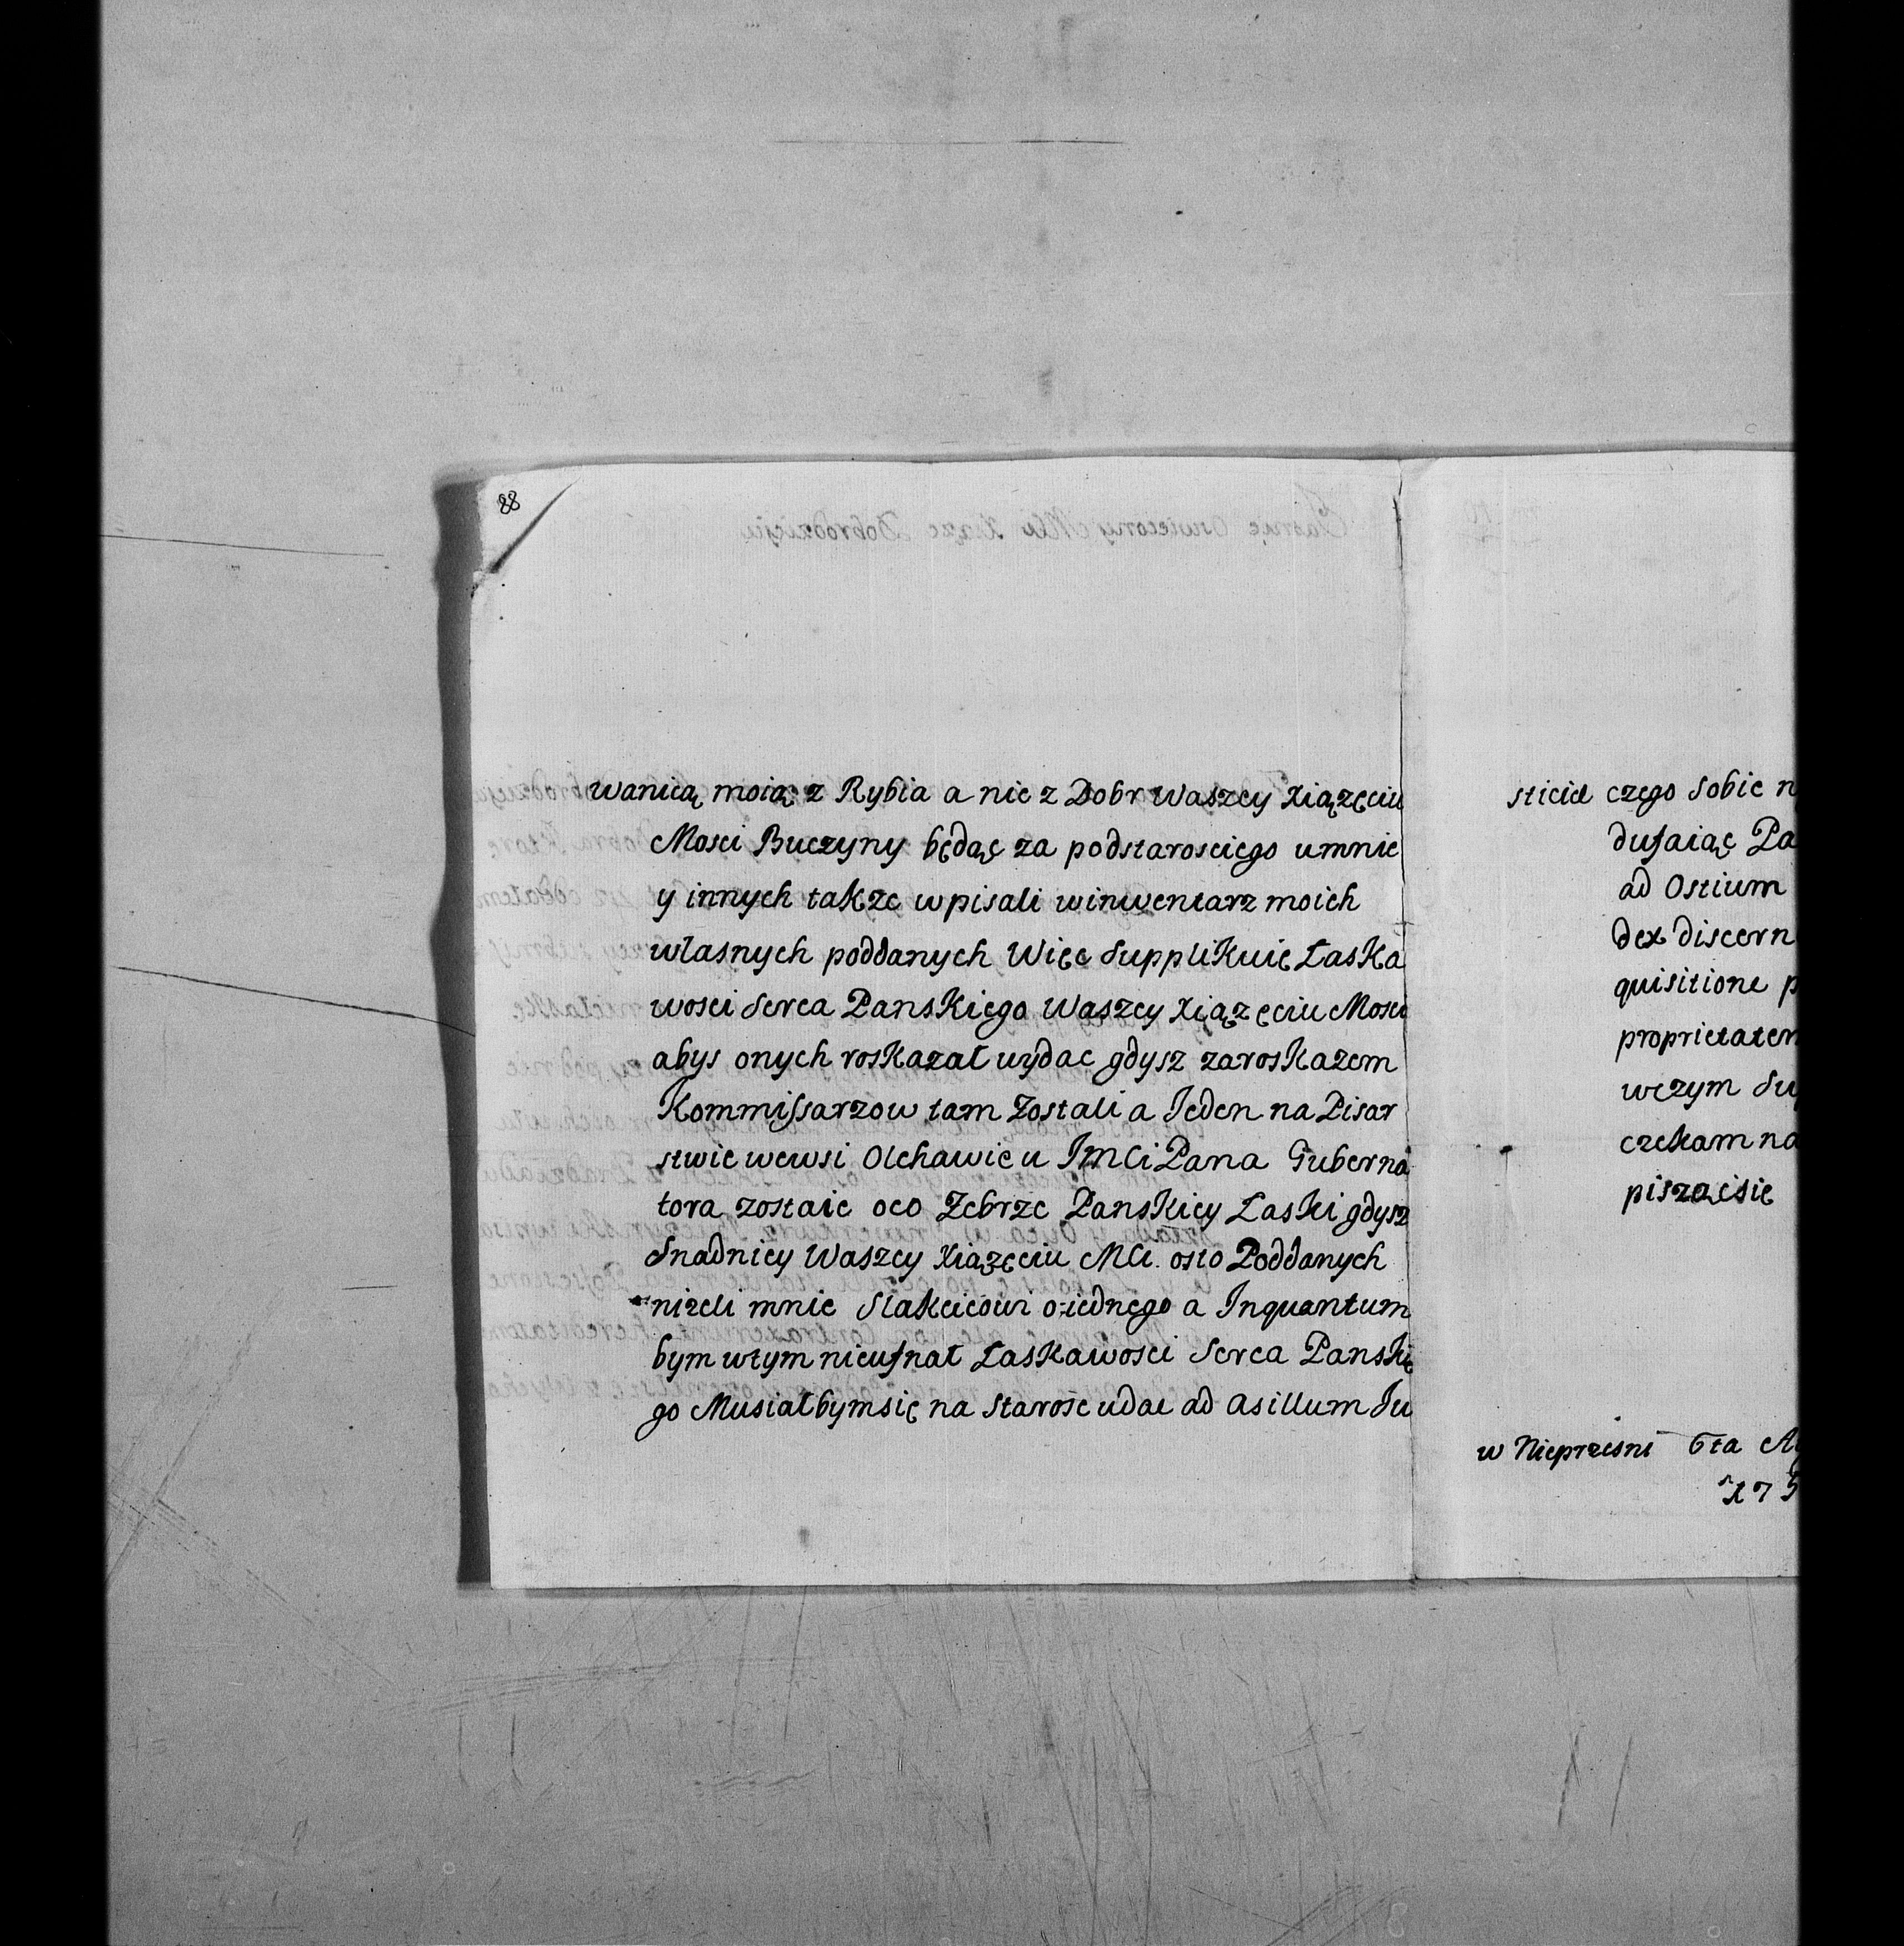 88
wanicą moią z Rybia a nie z Dobr Waszey Xiązęciu
Mosci Buczyny będąc za podstarosciego umnie
y innych takze wpisali winwentarz moich
własnych poddanych Więc Supplikuię Łaska
wosci Serca Panskiego Waszey Xiązęciu Mosci
abys onych roskazał wydac gdysz zaroskazem
Kommissarzow tam Zostali a Jeden na Pisar
stwie wewsi Olchawie u JMCi Pana Guberna
tora zostaie oco Zebrze Panskiey Łaski gdysz
Snadniey Waszey Xiązęciu MCi. osto Poddanych
nizeli mnie Slakcicowi oiednego a Inquantum
bym wtym nieufnał Łaskawosci Serca Panskie
go Musiałbymsię na Starosc udac ad asillum Ju
sticiae czego Sobie n
dufaiąc Pa
ad Ostium
dex discern
quisitione p
proprietatem
wczym Su
czekam na
piszącsie
w Nieprzesni 6ta A
175